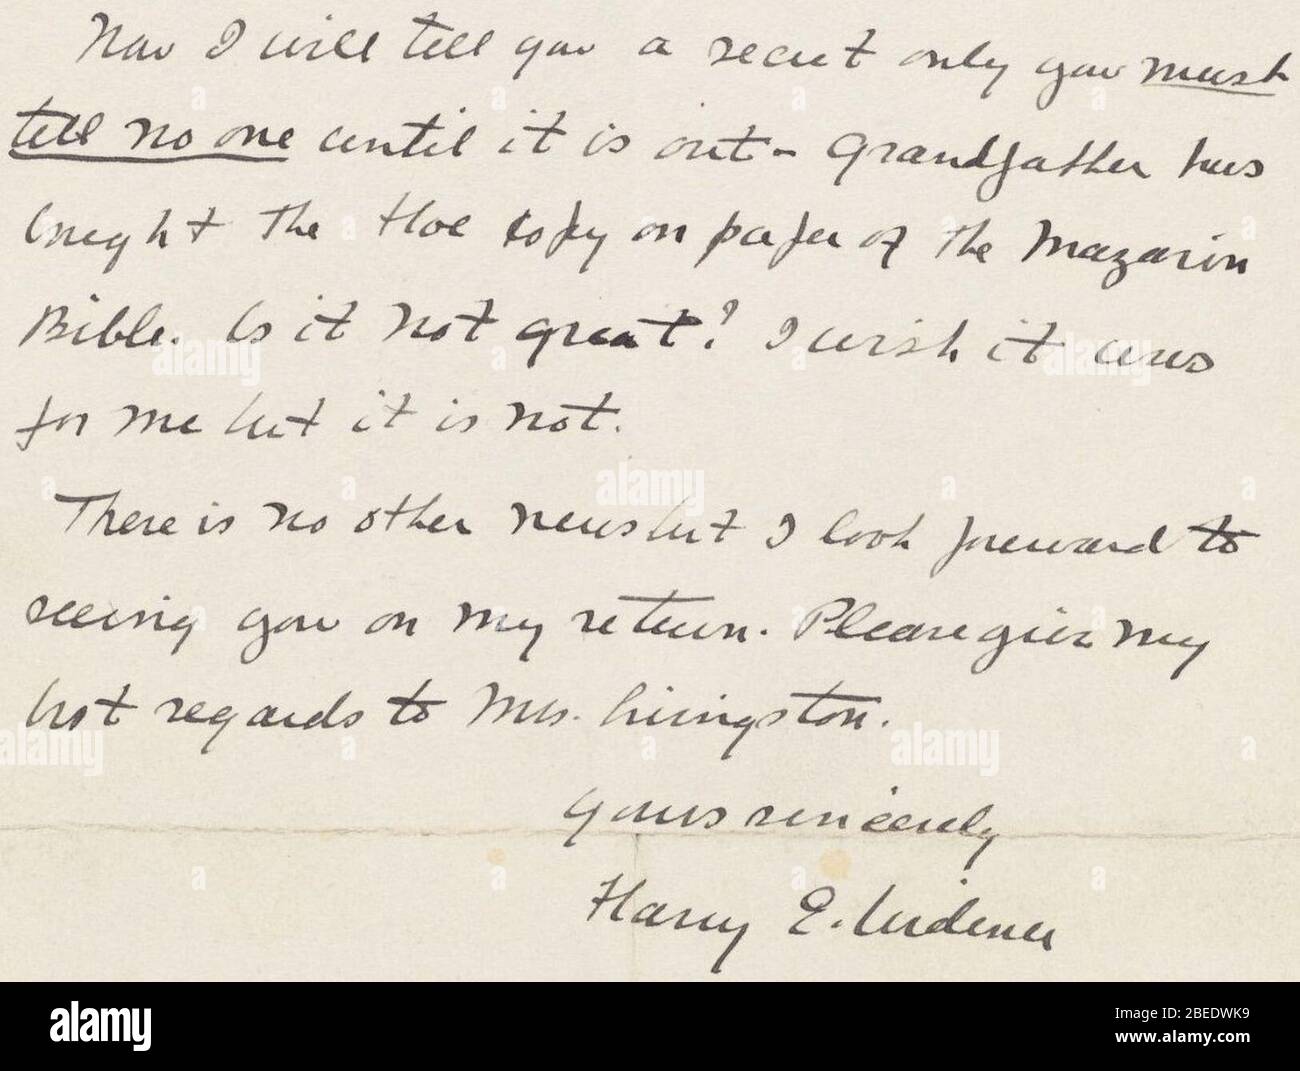 Now I will tell you a secret only you must
tell no one until it is out - Grandfather has
bought the Hoe copy on paper of the Mazarin
Bible. Is it not great? I wish it was
for me but it is not.
There is no other news but I look foreward to
seeing you on my return. Please give my
best regards to Mrs. Livingston.
Yours sincerely
Harry E. Widener
alamy
Image ID: 2BEDWK9
www.alamy.com